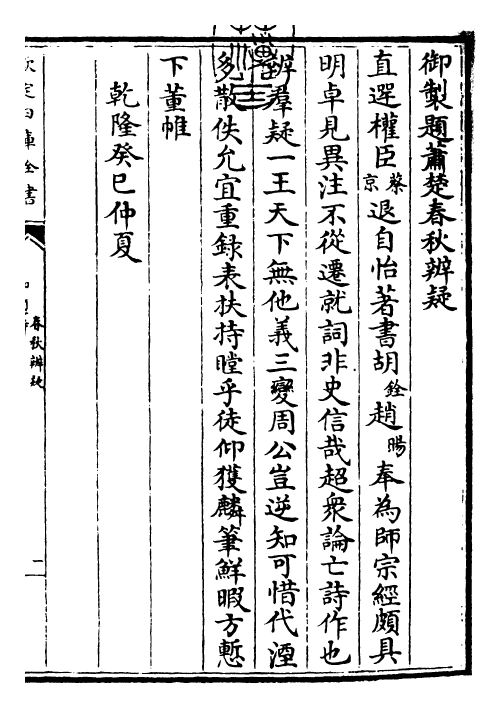 御製題蕭楚春秋辨疑
直選權臣蔡京退自怡著書胡銓趙暘奉為師宗經頗具
明卓見異注不從遷就詞非史信哉超衆論亡詩作也
辨羣疑一王天下無他義三變周公豈逆知可惜代湮
多散佚允宜重録表扶持瞠乎徒仰獲麟筆鮮暇方慙
下董帷
乾隆癸巳仲夏
欽定四庫全書
春秋辨疑
二